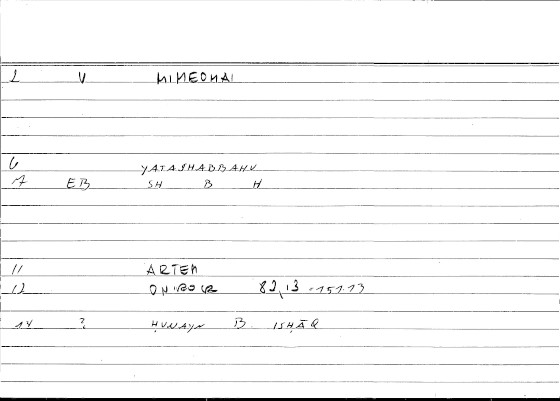 2 V MIMEOMAI
6 YATASHABBAHU
7 EB SH B H
11 ARTEM
12 ONIROCR 83,13 - 151.13
14 ? ḤUNAYN B. ISḤĀQ